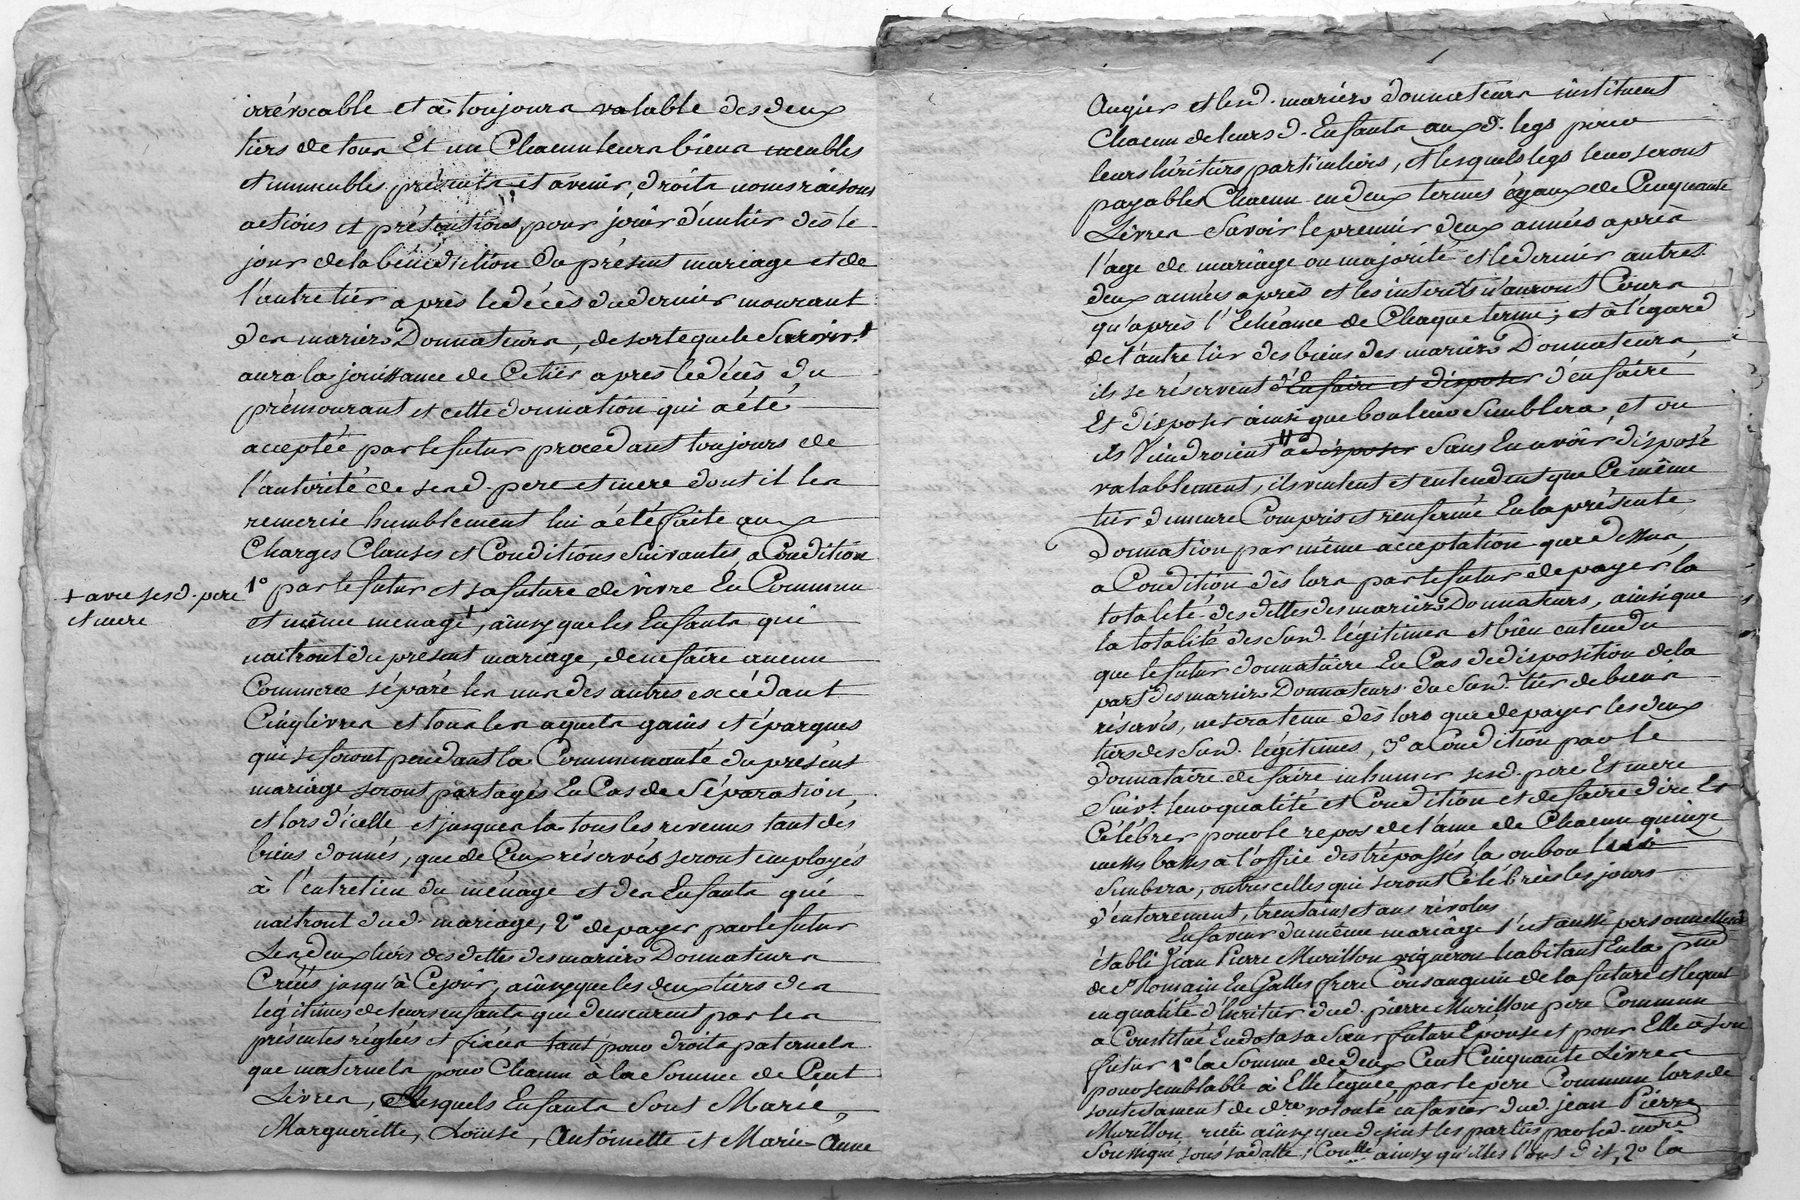 irrévocable et à toujours valable des deux
tiers de tous Et un Chacun leurs biens meubles
et immeubles, présents et avenir, droits noms raisons
actions et prétentions, pour jouir d'un tier dès le
jour de la bénédiction du présent mariage et de
l'autre tier après le décès du dernier mourant
des mariés Donnateurs, de sorte que le Survivt
aura la jouissance de Ce tier après le décès du
prémourant et cette donnation qui a été
acceptée par le futur procedant toujours de
l'autorité de sesd. pere et mere dont il les
remercie humblement lui a été faite aux
Charges Clauses et Conditions Suivantes, a Condition
1° par le futur et sa future de vivre En Commun
+ avec sesd. pere
et mere
et même menage +, ainsy que les Enfants qui
naitront du présent mariage, de ne faire aucun
Commerce séparé les uns des autres excédant
Cinq livres et tous les aquets gains et épargnes
qui se feront pendant la Communauté du présent
mariage seront partagés En Cas de Séparation,
et lors d'icelle, et jusques la tous les revenus tant des
biens donnés, que de Ceux réservés seront employés
à l'entretien du ménage et des Enfants qui
naitront dud. mariage, 2° de payer par le futur
Les deux tiers des dettes des mariés Donnateurs
Créés jusqu'à Ce jour, ainsy que les deux tiers des
légitimes de leurs enfants qui demeurent par les
présentes réglées et fixées tant pour droits paternels
que maternels pour Chacun à la Somme de Cent
Livres, lesquels Enfants Sont Marie,
Margueritte, Loüise, Antoinette et Marie-Anne
Augier et lesd. mariés donnateurs instituent
Chacun de leursd. Enfants aux d. legs pour
leurs héritiers particuliers, et lesquels legs leur seront
payables Chacun en deux termes égaux de Cinquante
Livres Savoir le premier deux années après
l'age de mariage ou majorité et le dernier autres
deux années après et les interets n'auront Cours
qu'après l'Echéance de Chaque terme; et à l'égard
de l'autre tier des biens des mariés Donnateurs
ils se réservent d'En faire et disposer d'en faire
Et disposer ainsi que bon leur Semblera, et ou
ils Viendroient a disposer Sans En avoir disposé
valablement, ils veulent et entendent que Ce même
tier demeure Compris et renfermé En la présente
Donnation par même acceptation que dessus,
a Condition dès lors par le futur de payer la
totalité des dettes des mariés Donnateurs, ainsi que
la totalité des Susd. légitimes et bien entendu
que le futur donnataire En Cas de disposition de la
part des mariés Donnateurs du Susd. tier de biens
réservés, ne sera tenu dès lors que de payer les deux
tiers des Susd. légitimes, 3° a Condition par le
Donnataire de faire inhumer sesd. pere Et mere
Suivt. leur qualité et Condition et de faire dire Et
Célébrer pour le repos de l'ame de Chacun quinze
messes basses à l'office des trépassés la ou bon lui
Semblera, outres celles qui seront Célébrées les jours
d'enterrement, trentains et ans révolus
En faveur du même mariage s'est aussi personnellemt
établi Jean Pierre Murillon vigneron habitant En la psse
de St Romain En Galles frere Consanguin de la future et lequel
en qualité d'héritier dud. pierre Murillon pere Commun
a Constitué En dot a sa Sœur future Epouse et pour Elle à son
futur 1° la Somme de deux Cent Cinquante Livres
pour semblable à Elle leguée par le pere Commun lors de
son testament de dre volonté en faveur dud. jean Pierre
Murillon, reçu ainsy que disent les parties par led. nore
Soussigné sous sa datte, Conllé ainsy qu'elles l'ont dit, 2° la